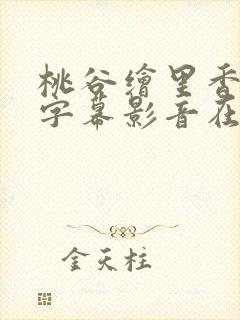 桃谷繪里香
字幕影音在
金天柱